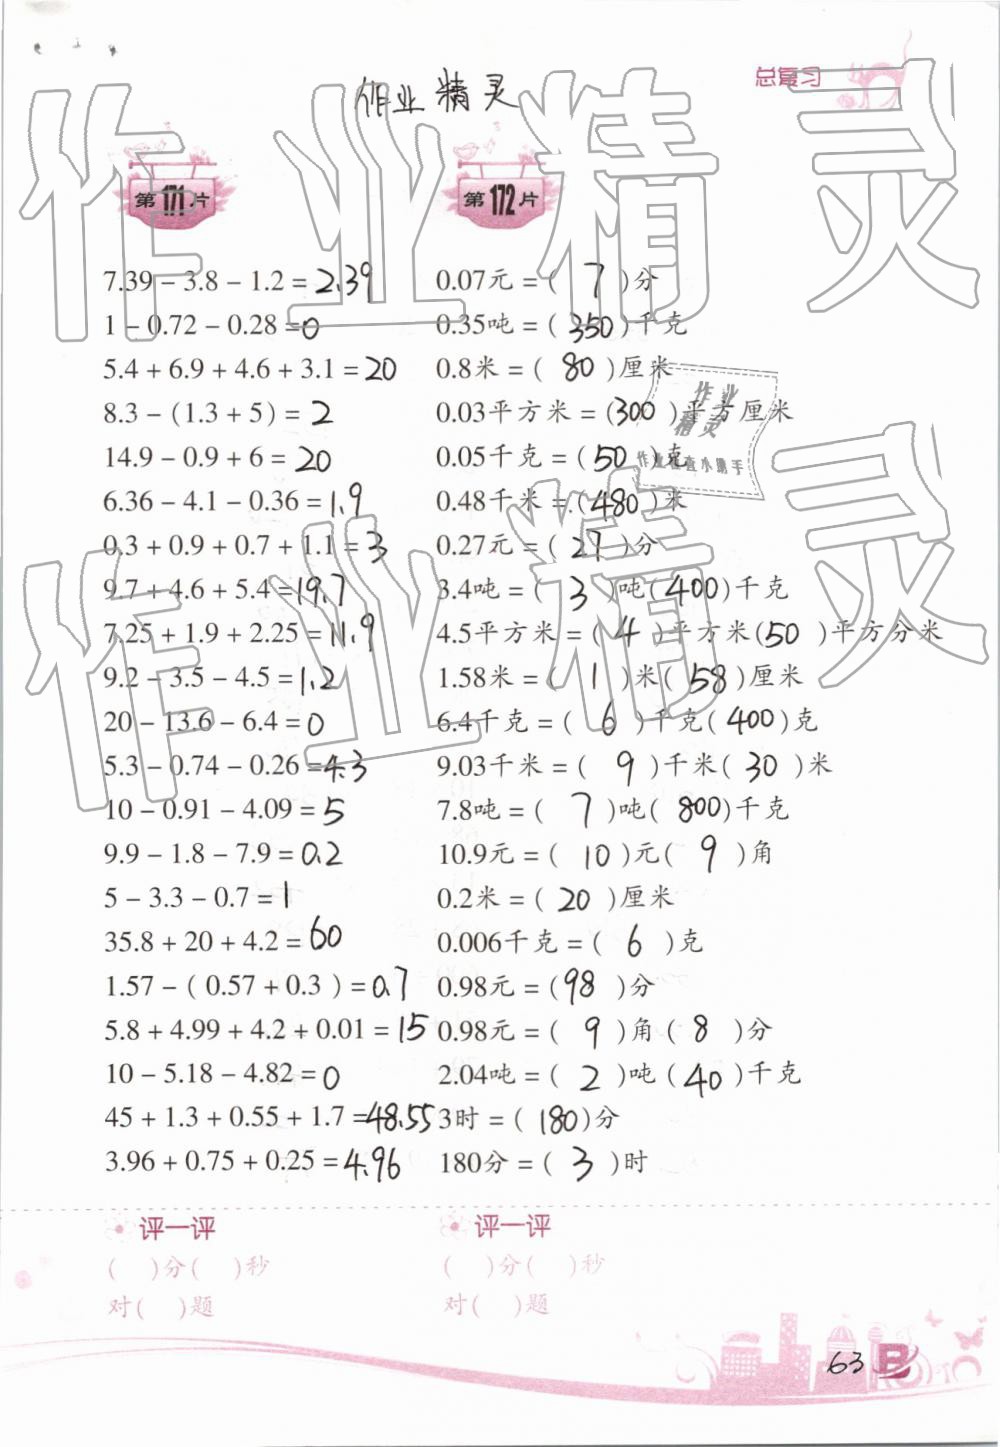 总复习
作业精灵
作业精灵
第171片
7.39 − 3.8 − 1.2 = 2.39
1 − 0.72 − 0.28 = 0
5.4 + 6.9 + 4.6 + 3.1 = 20
8.3 − (1.3 + 5) = 2
14.9 − 0.9 + 6 = 20
6.36 − 4.1 − 0.36 = 1.9
0.3 + 0.9 + 0.7 + 1.1 = 3
9.7 + 4.6 + 5.4 = 19.7
7.25 + 1.9 + 2.25 = 11.9
9.2 − 3.5 − 4.5 = 1.2
20 − 13.6 − 6.4 = 0
5.3 − 0.74 − 0.26 = 4.3
10 − 0.91 − 4.09 = 5
9.9 − 1.8 − 7.9 = 0.2
5 − 3.3 − 0.7 = 1
35.8 + 20 + 4.2 = 60
1.57 − ( 0.57 + 0.3 ) = 0.7
5.8 + 4.99 + 4.2 + 0.01 = 15
10 − 5.18 − 4.82 = 0
45 + 1.3 + 0.55 + 1.7 = 48.55
3.96 + 0.75 + 0.25 = 4.96
评一评
( )分( )秒
对( )题
第172片
0.07元 = ( 7 )分
0.35吨 = ( 350 )千克
0.8米 = ( 80 )厘米
0.03平方米 = (300 )平方厘米
0.05千克 = ( 50 )克
0.48千米 = (480 )米
0.27元 = ( 27 )分
3.4吨 = ( 3 )吨( 400 )千克
4.5平方米 = ( 4 )平方米(50 )平方分米
1.58米 = ( 1 )米( 58 )厘米
6.4千克 = ( 6 )千克( 400 )克
9.03千米 = ( 9 )千米( 30 )米
7.8吨 = ( 7 )吨( 800 )千克
10.9元 = ( 10 )元( 9 )角
0.2米 = ( 20 )厘米
0.006千克 = ( 6 )克
0.98元 = (98 )分
0.98元 = ( 9 )角( 8 )分
2.04吨 = ( 2 )吨( 40 )千克
3时 = ( 180 )分
180分 = ( 3 )时
评一评
( )分( )秒
对( )题
作业
精灵
作业检查小助手
作业精灵
63